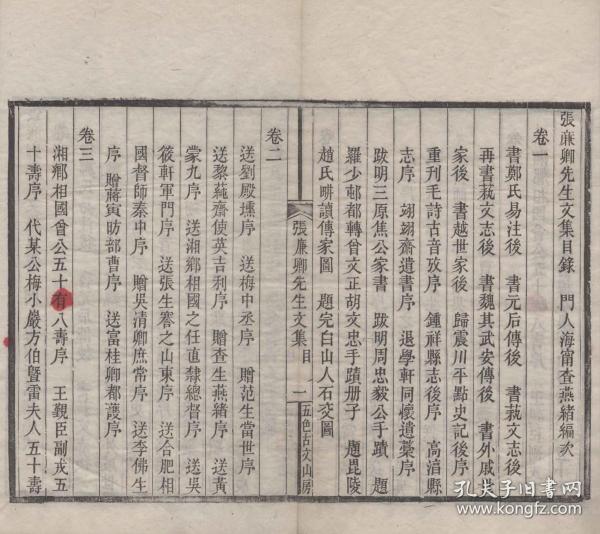 張廉卿先生文集目錄　門人海甯查燕緒編次
卷一
書鄭氏易注後　書元后傳後　書蓺文志後
再書蓺文志後　書魏其武安傳後　書外戚世
家後　書越世家後　歸震川平點史記後序
重刊毛詩古音攷序　鍾祥縣志後序　高淯縣
志序　翊翊齋遺書序　退學軒同懷遺藁序
跋明三原焦公家書　跋明周忠毅公手蹟　題
羅少邨都轉曾文正胡文忠手蹟册子　題毘陵
趙氏畊讀傳家圖　題完白山人石交圖
張廉卿先生文集　目　一　五色古文山房
卷二
送劉殿壎序　送梅中丞序　贈范生當世序
送黎蒓齋使英吉利序　贈查生燕緒序　送黃
蒙九序　送湘鄉相國之任直隸總督序　送吳
筱軒軍門序　送張生謇之山東序　送合肥相
國督師秦中序　贈吳清卿庶常序　送李佛生
序　贈蔣寅昉部曹序　送富桂卿都護序
卷三
湘鄉相國曾公五十有八壽序　王觀臣副戎五
十壽序　代某公梅小巖方伯曁雷夫人五十壽
孔夫子旧书网
www.kongfz.com